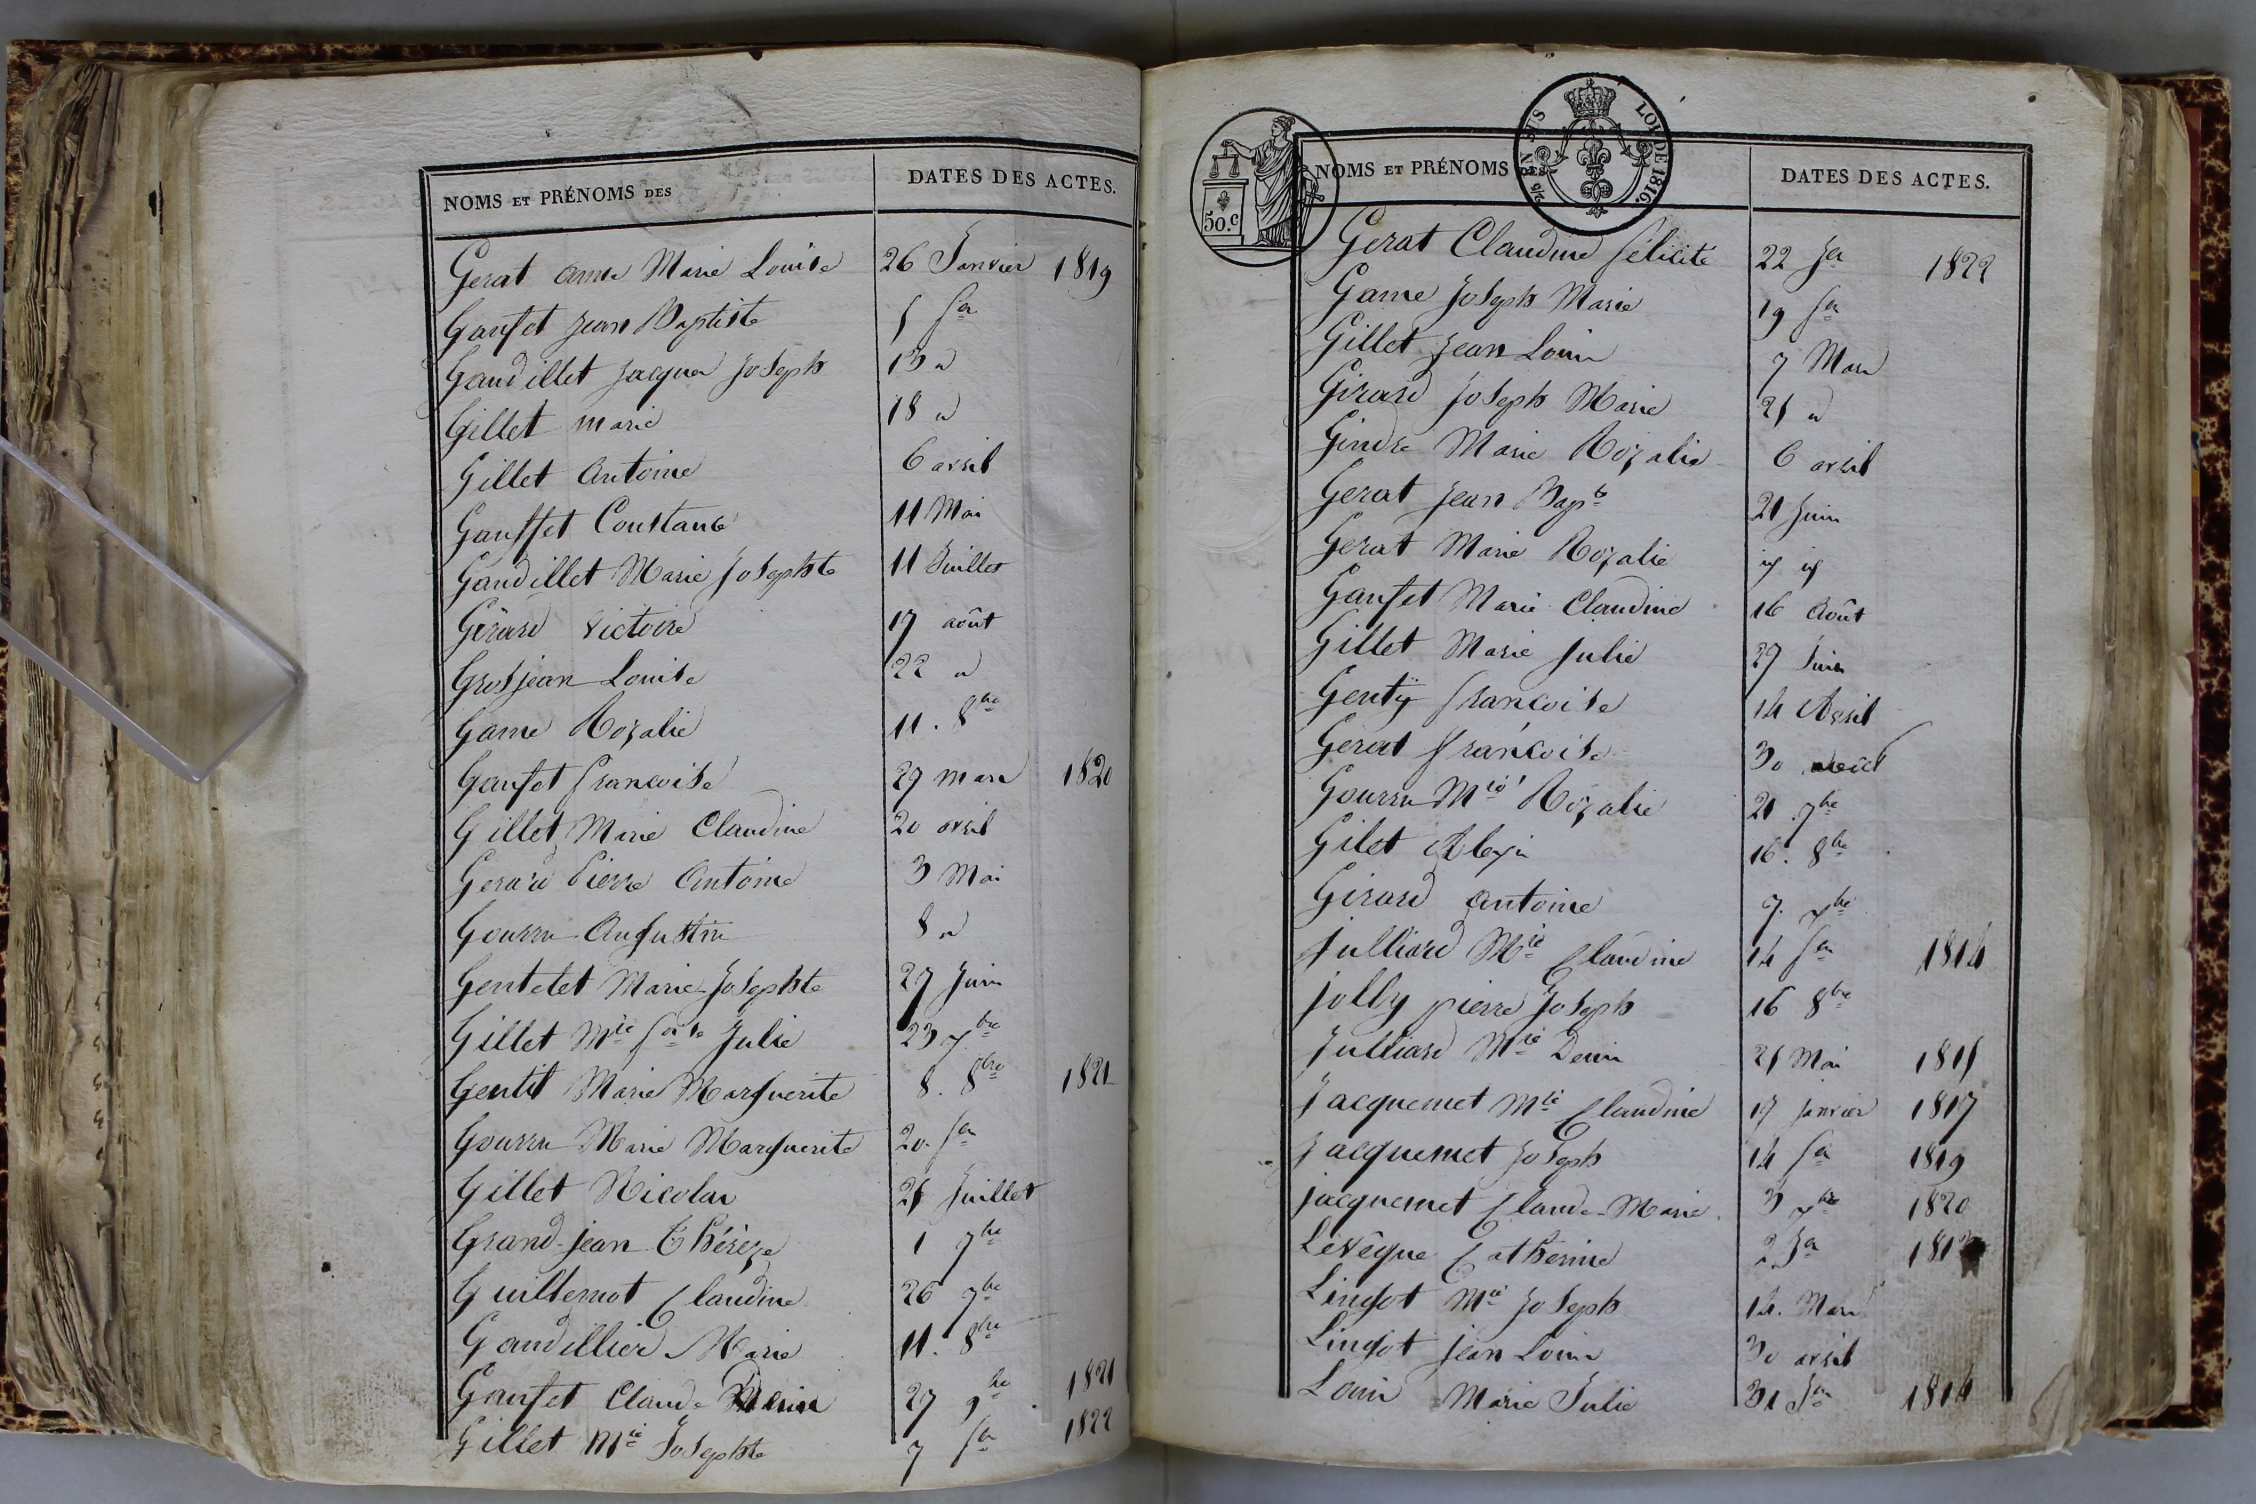 NOMS ET PRÉNOMS DES DATES DES ACTES.
Gerat anne Marie Louise 26 Janvier 1819
Gauset Jean Baptiste 5 f.er
Gaudillet Jacques Joseph 13 d
Gillet marie 18 d
Gillet Antoine 6 avril
Gausset Constance 11 Mai
Gaudillet Marie Josephte 11 Juillet
Girard victoire 17 août
Grosjean Louise 22 d
Game Rozalie 11. 8bre
Gauset francoise 29 mars 1820
Gillet Marie Claudine 20 avril
Gerard Pierre Antoine 3 Mai
Gourru Augustin 8 d
Gentelet Marie Josephte 27 Juin
Gillet Mie Julie 23 7bre
Gentil Marie Marguerite 8. 8bre 1821
Gourru Marie Marguerite 20. f.er
Gillet Nicolas 25 Juillet
Grand-jean Thérèze 1 7bre
Guillemot Claudine 26 7bre
Gaudillier Marie 11. 8bre
Gauset Claude 27 9bre 1821
Gillet Mie Josephte 7 f.er 1822
50.c
LOI DE 1816.
NOMS ET PRÉNOMS DES DATES DES ACTES.
Gerat Claudine félicité 22 J.er 1822
Game Joseph Marie 19 f.er
Gillet Jean Louis 7 Mars
Girard Joseph Marie 25 d
Gindre Marie Rozalie 6 avril
Gerat Jean Bapte 21 Juin
Gerat Marie Rozalie id id
Gauset Marie Claudine 16 Août
Gillet Marie Julie 27 Juin
Gentÿ francoise 14 Avril
Gerat francoise 30 août
Gourru Mie Rozalie 21 7bre
Gilet Alexis 16. 8bre
Girard antoine 9. xbre
Julliard Mie Claudine 14 f.er 1814
jolly pierre Joseph 16 8bre
Julliard Mie Denis 25 Mai 1815
Jacquemet Mie Claudine 17 janvier 1817
Jacquemet Joseph 14 f.er 1819
jacquemet Claude-Marie 3 xbre 1820
Levêque Catherine 2 J.er
Lingot Mie Joseph 14. Mars
Lingot jean Louis 30 avril
Louis Marie Julie 31 J.er 1814